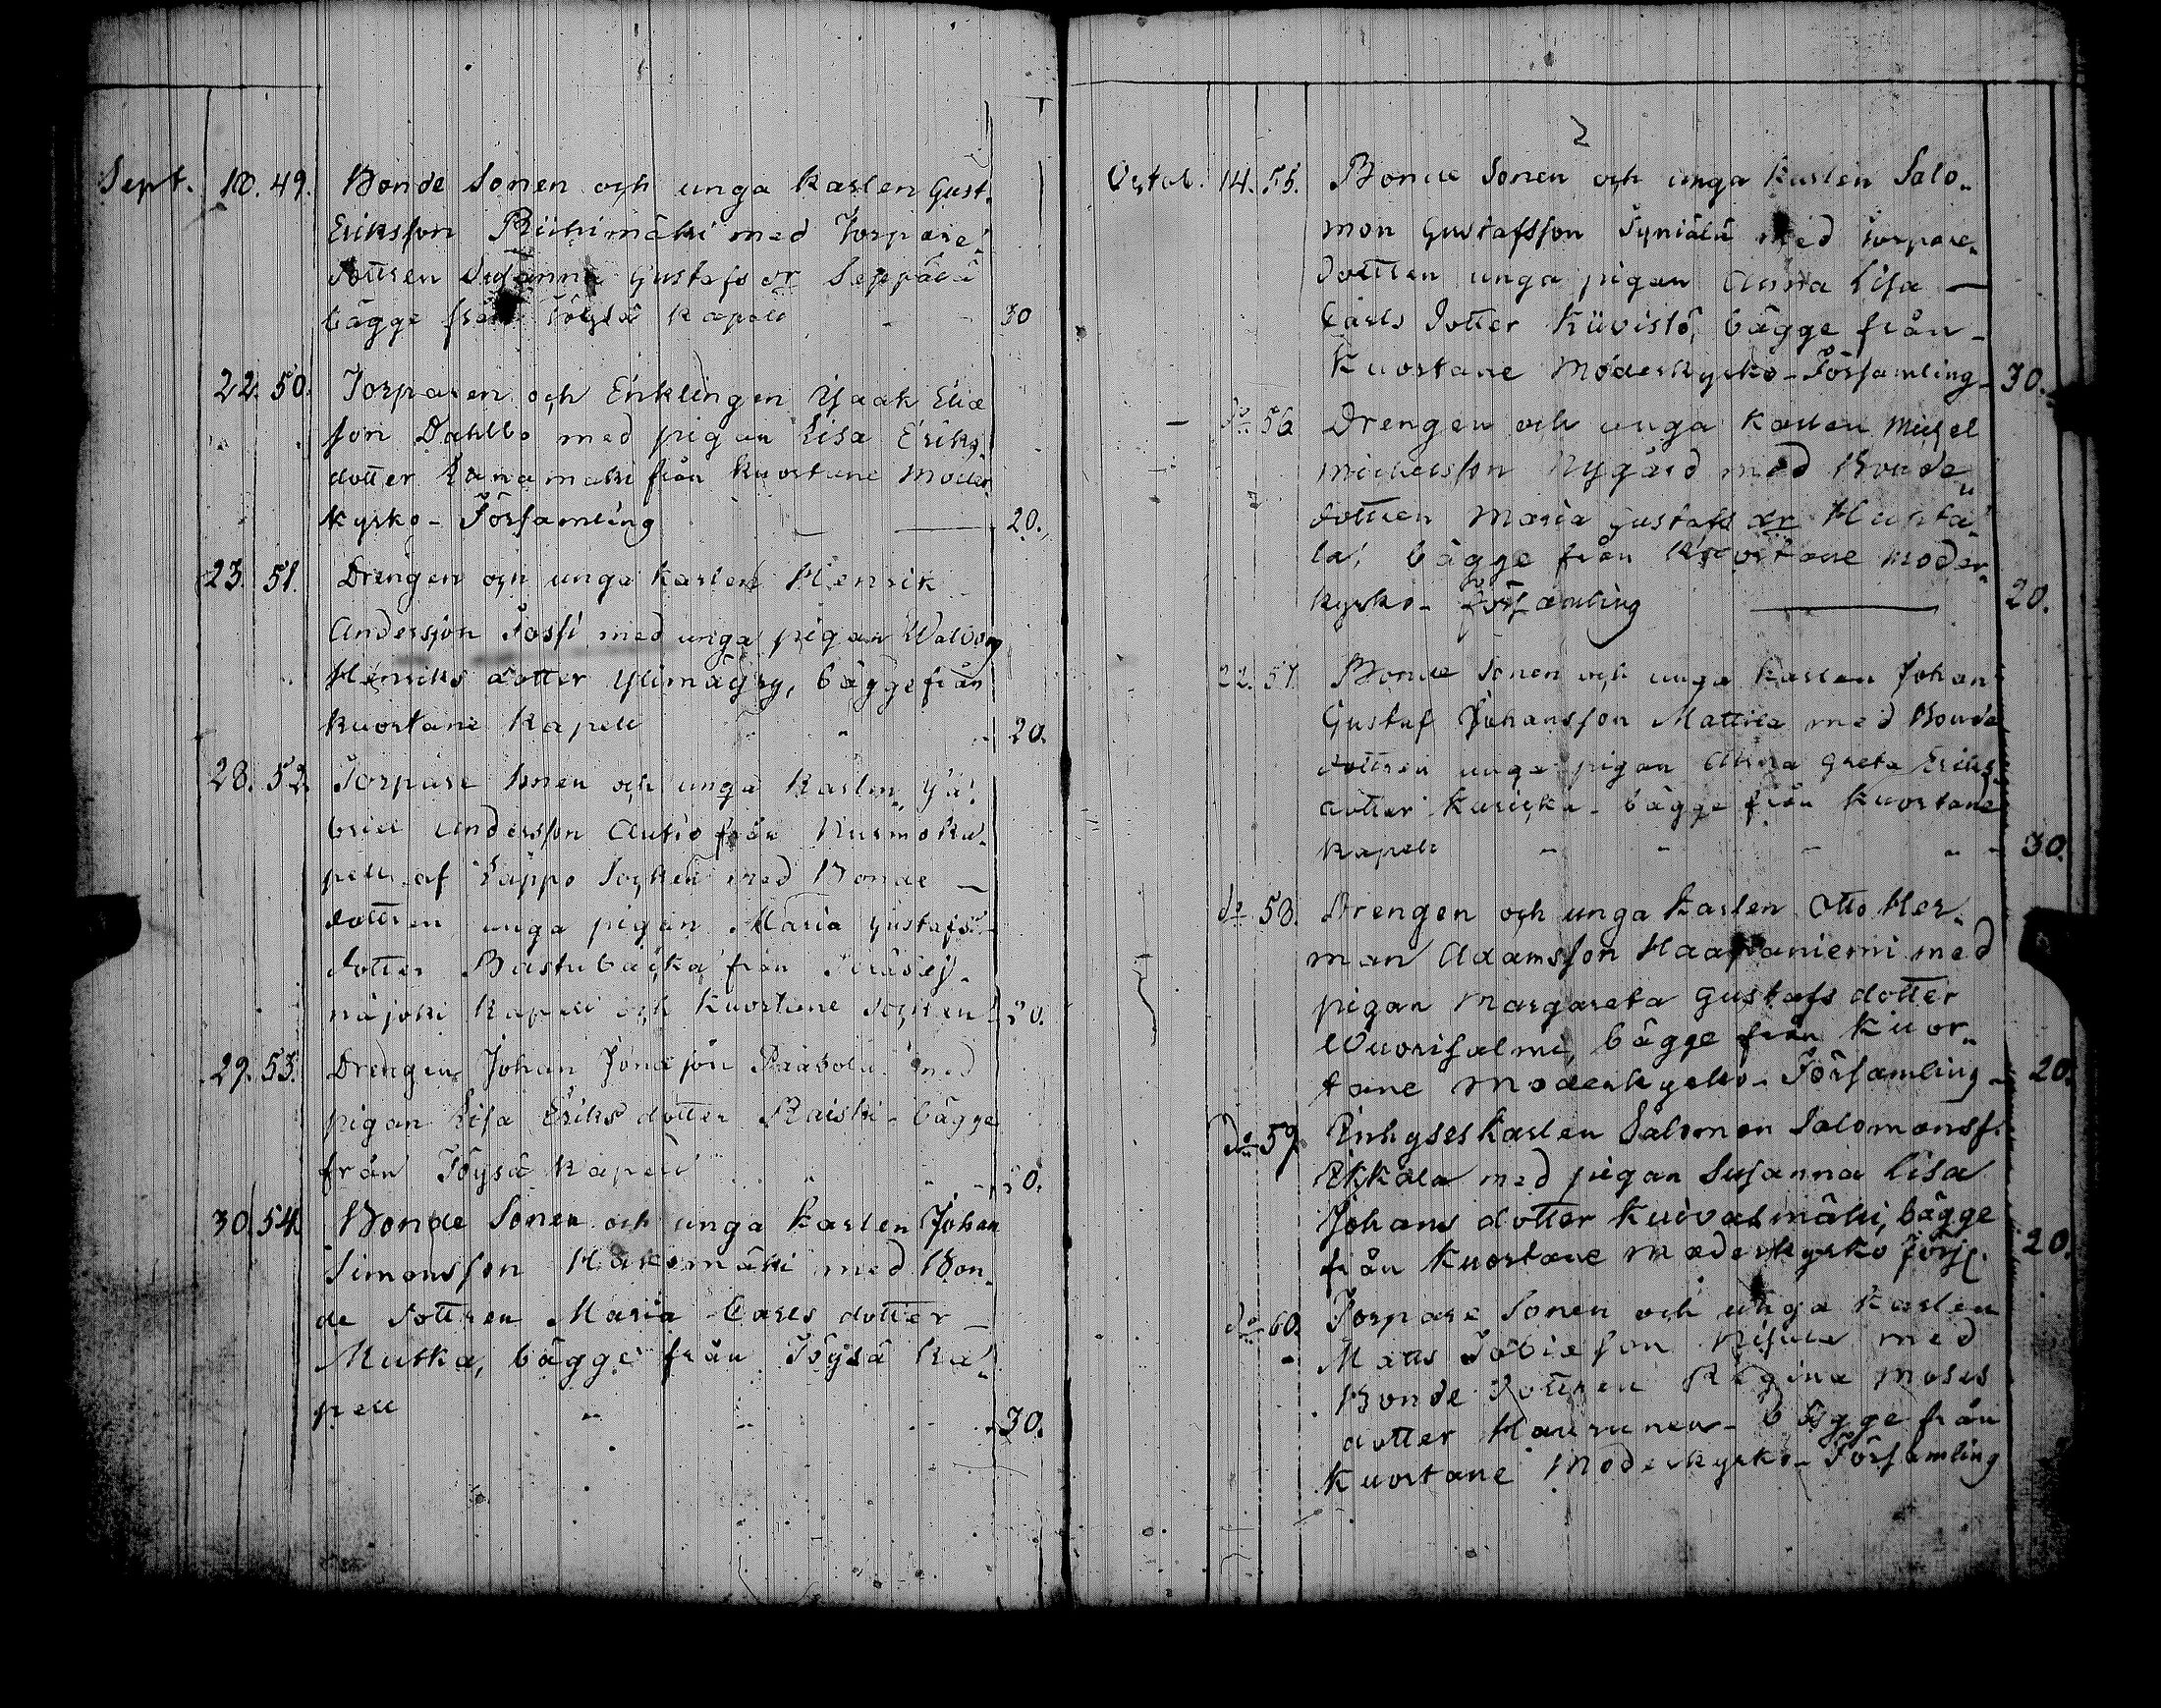 Sept. 10. 49. Bonde Sonen och unga karlen Gust.
Eriksson Riihimäki med Torpare
dottren Susanna Gustafs dr Seppälä
bägge från Töysä kapell 30
22. 50. Torparen och Enklingen Isaak Elia
son Dahlbo med pigan Lisa Eriks
dotter Länamäki från Kuortane Moder
kyrko-Församling 20.
23. 51. Drengen och unga karlen Henrik
Andersson Jossi med unga pigan Walborg
Henriks dotter Ylimäyry, bägge från
Kuortane kapell 20.
28. 52. Torpare sonen och unga karlen Ga-
briel Andersson Autio från Nurmo ka-
pell af Lappo Socken med Bonde
dottren unga pigan Maria Gustafs
dotter Bastubacka från
näjoki kapell och Kuortane Socken 20.
29. 53. Drengen Johan Jonasson med
pigan Lisa Eriks dotter Raiski - bägge
från Töysä kapell 20.
30. 54. Bonde Sonen och unga karlen Johan
Simonsson Hakomäki med Bon-
de dottren Maria Carls dotter
Mutka, bägge från Töysä ka-
pell 30.
2
Octob. 14. 55. Bonde Sonen och unga karlen Salo-
mon Gustafsson Syniälä med Torpare
dottren unga pigan Anna Lisa
Carls dotter Kiivistö, bägge från
Kuortane Moderkyrko-Församling 30.
do 56 Drengen och unga karlen Michel
Michelsson Nygård med Bonde
dottren Maria Gustafs dr Huhta
la, bägge från Kuortane Moder
kyrko-församling 20.
22. 57. Bonde Sonen och unga karlen Johan
Gustaf Johansson Mattila med Bonde
dottren unga pigan Anna Greta Eriks
dotter - bägge från Kuortane
kapell 30.
do 58. Drengen och unga karlen Otto Her-
man Adamsson Haapaniemi med
pigan Margareta Gustafs dotter
Wuorisalmi, bägge från Kuor-
tane Moderkyrko-Församling 20.
do 59. Inhyseskarlen Salomon Salomonss.
med pigan Susanna Lisa
Johans dotter Kuivasmäki, bägge
från Kuortane Moderkyrko förs. 20.
do 60. Torpare Sonen och unga karlen
Matts Tobiason med
Bonde dottren Regina Moses
dotter Haurunen - bägge från
Kuortane Moderkyrko-Församling